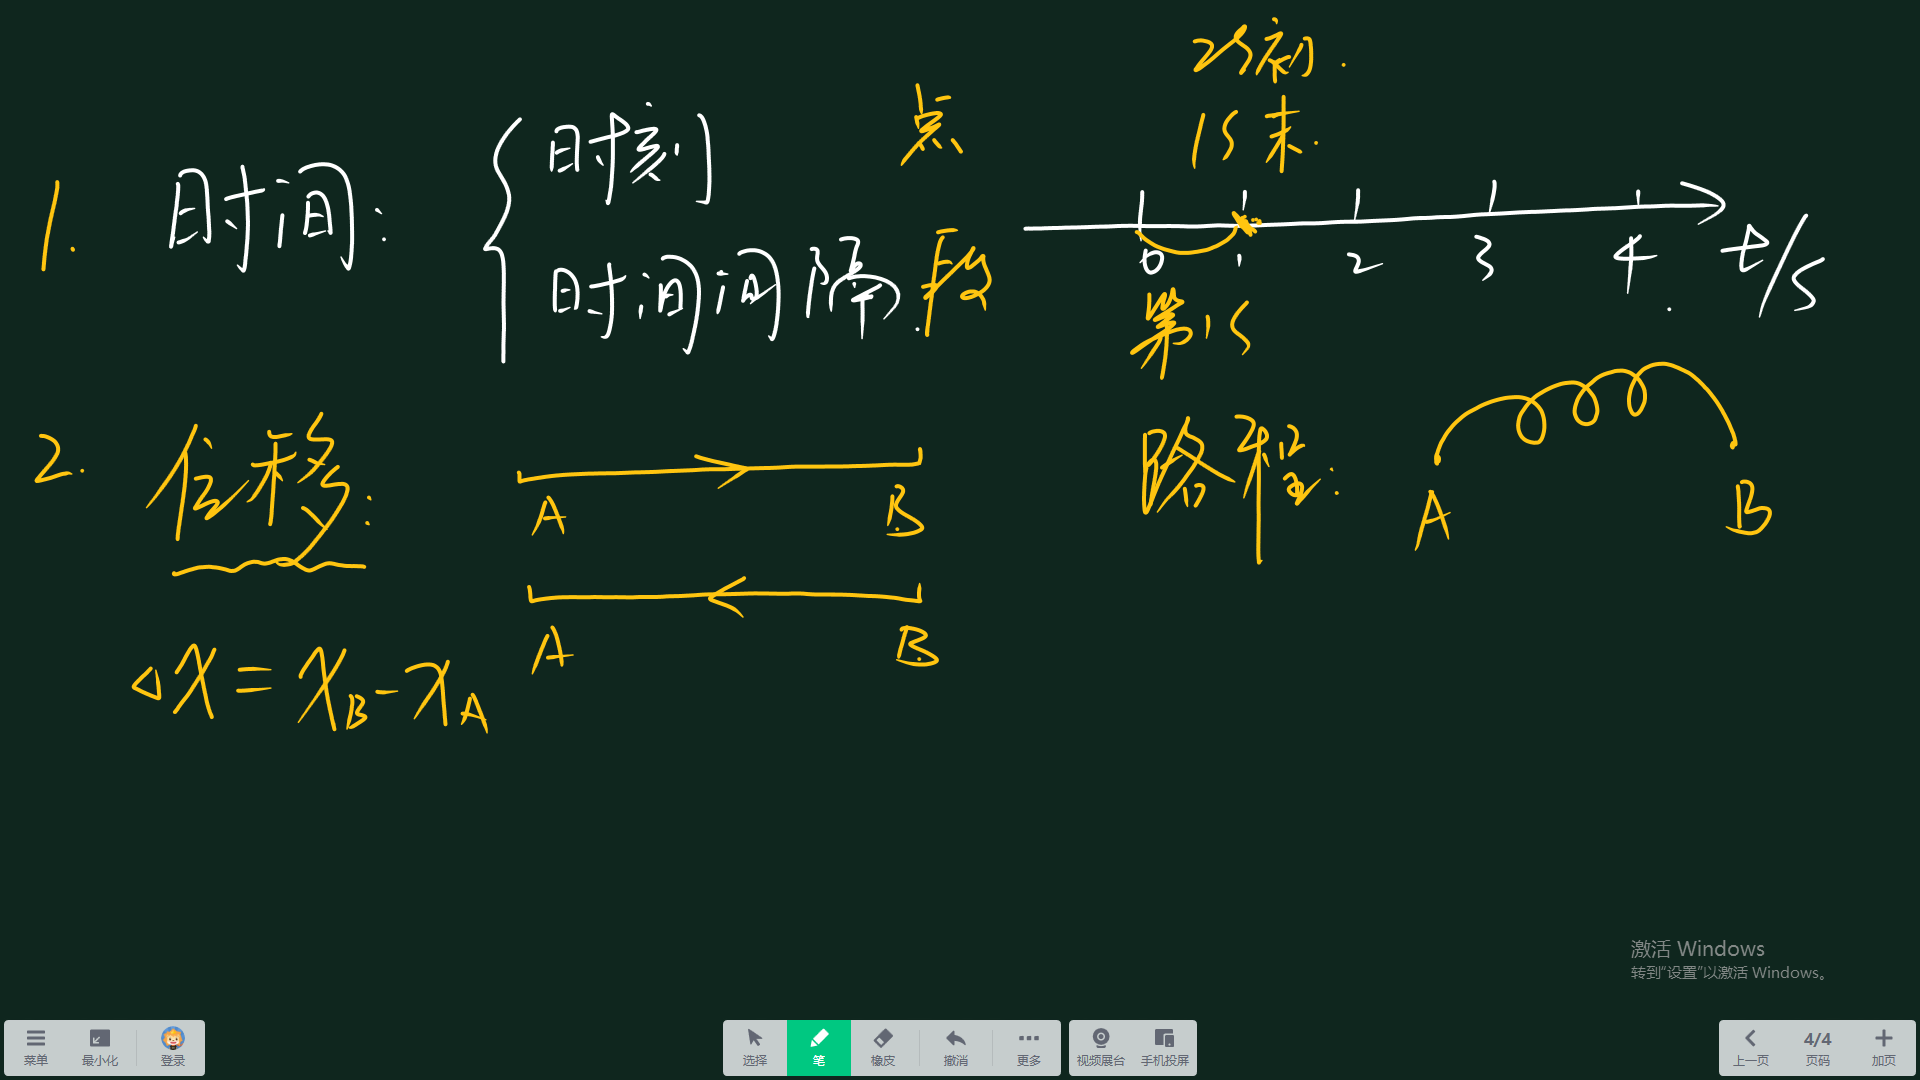 1. 时间:
时刻 点
时间间隔. 段
2s初.
1s末.
0 1 2 3 4 t/s
第1s
2. 位移:
A B
A B
△x = xB - xA
路程:
A B
激活 Windows
转到“设置”以激活 Windows。
菜单 最小化 登录
选择 笔 橡皮 撤消 更多
视频展台 手机投屏
上一页 4/4 页码 加页